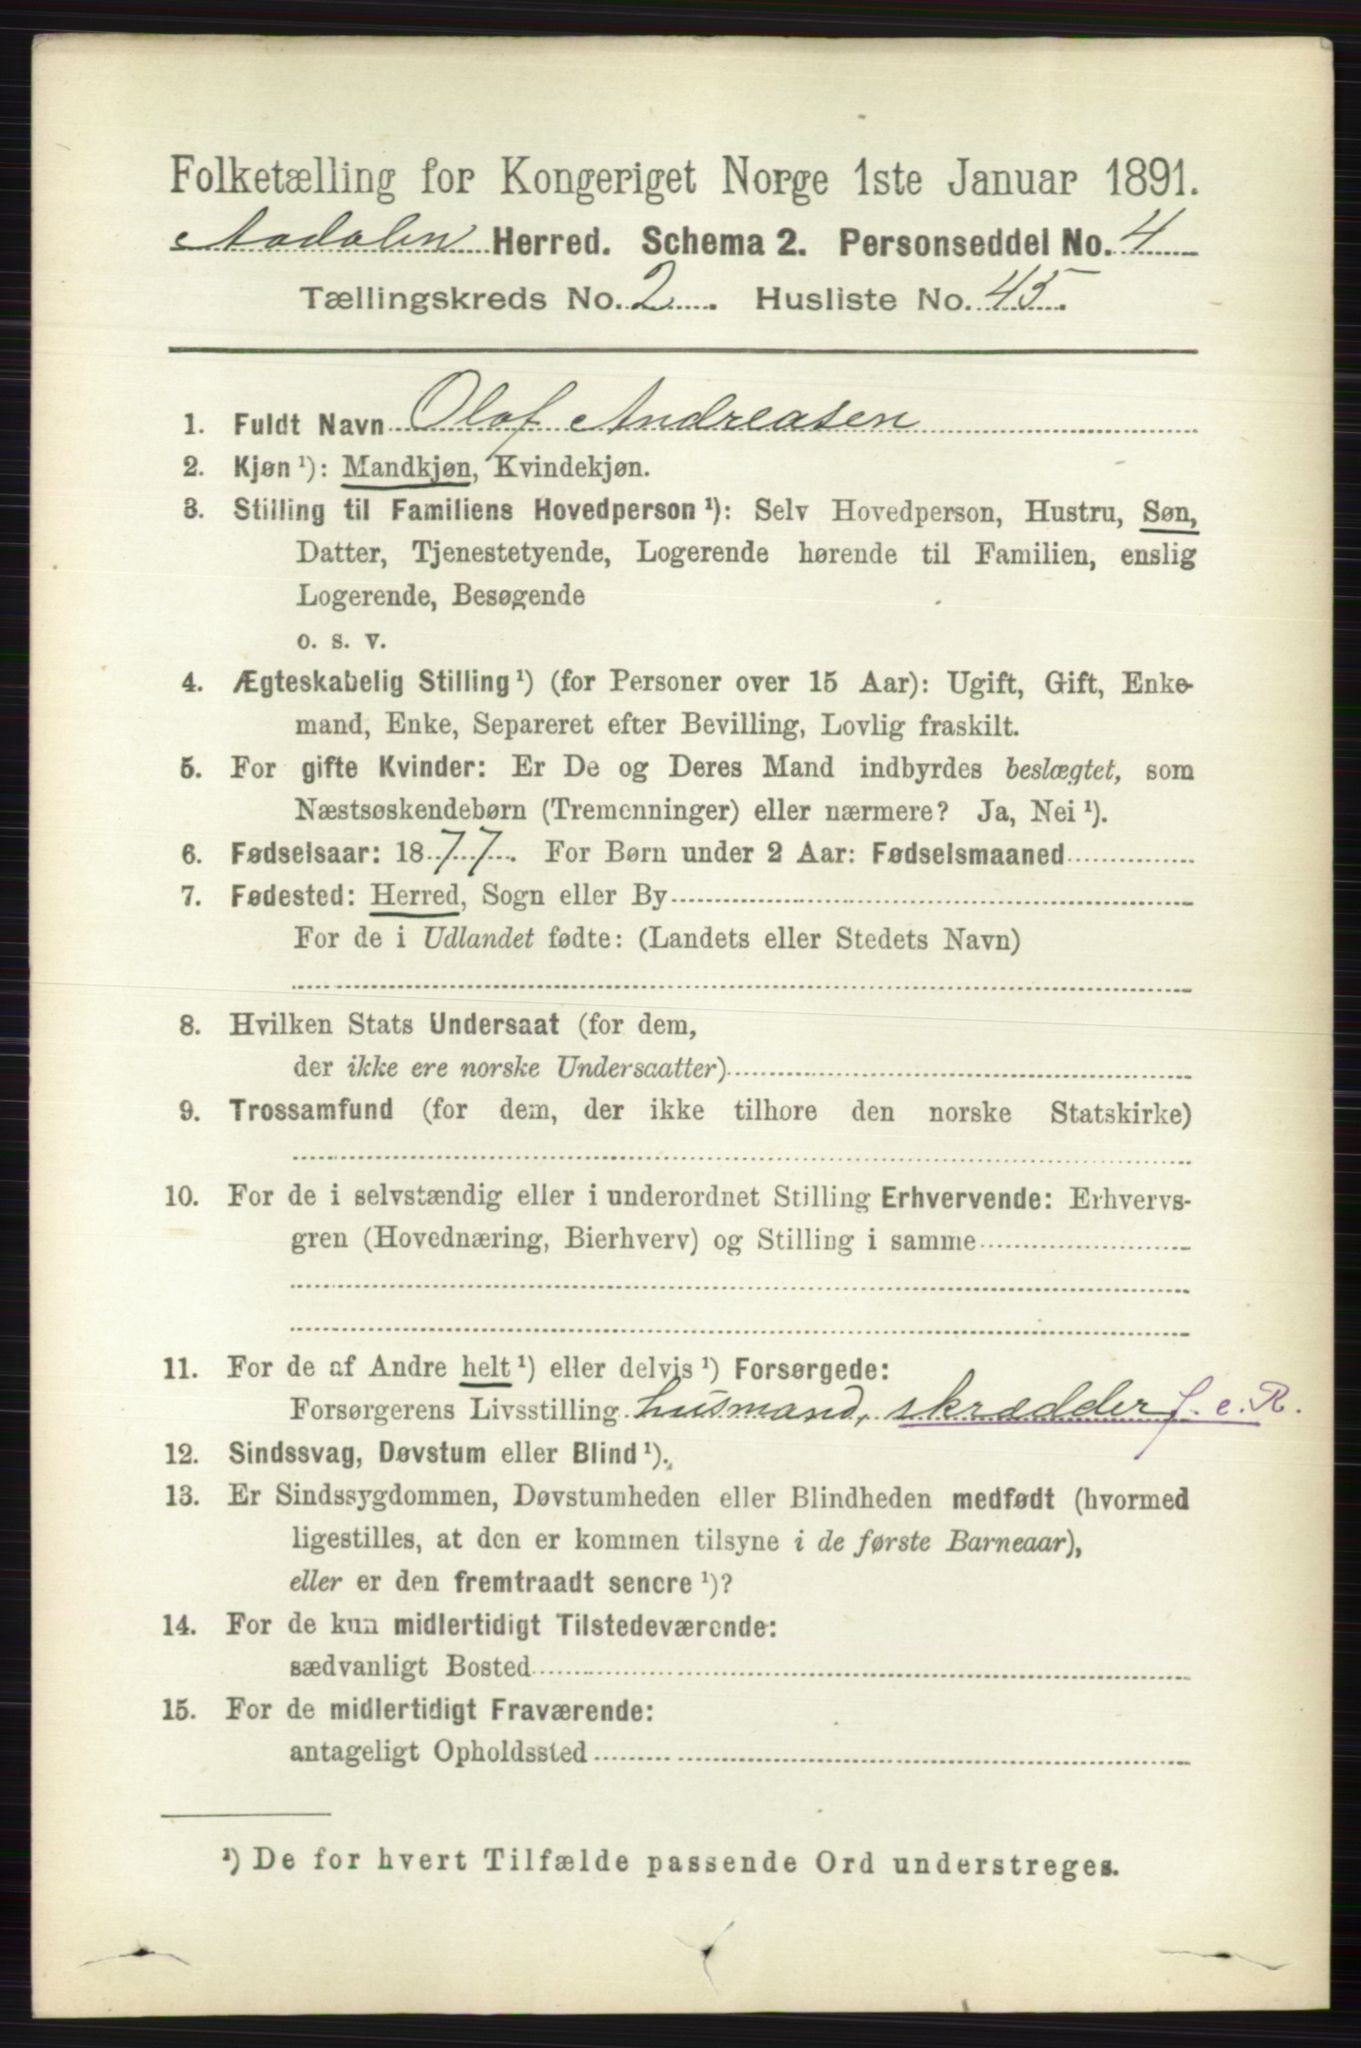 Folketælling for Kongeriget Norge 1ste Januar 1891.
Aadalen Herred. Schema 2. Personseddel No. 4
Tællingskreds No. 2. Husliste No. 45.
1. Fuldt Navn Olof Andreasen
2. Kjøn ¹): Mandkjøn, Kvindekjøn.
3. Stilling til Familiens Hovedperson ¹): Selv Hovedperson, Hustru, Søn,
Datter, Tjenestetyende, Logerende hørende til Familien, enslig
Logerende, Besøgende
o. s. v.
4. Ægteskabelig Stilling ¹) (for Personer over 15 Aar): Ugift, Gift, Enke-
mand, Enke, Separeret efter Bevilling, Lovlig fraskilt.
5. For gifte Kvinder: Er De og Deres Mand indbyrdes beslægtet, som
Næstsøskendebørn (Tremenninger) eller nærmere? Ja, Nei ¹).
6. Fødselsaar: 1877. For Børn under 2 Aar: Fødselsmaaned
7. Fødested: Herred, Sogn eller By
For de i Udlandet fødte: (Landets eller Stedets Navn)
8. Hvilken Stats Undersaat (for dem,
der ikke ere norske Undersaatter)
9. Trossamfund (for dem, der ikke tilhøre den norske Statskirke)
10. For de i selvstændig eller i underordnet Stilling Erhvervende: Erhvervs-
gren (Hovednæring, Bierhverv) og Stilling i samme
11. For de af Andre helt ¹) eller delvis ¹) Forsørgede:
Forsørgerens Livsstilling husmand, skrædder f. e. R.
12. Sindssvag, Døvstum eller Blind ¹).
13. Er Sindssygdommen, Døvstumheden eller Blindheden medfødt (hvormed
ligestilles, at den er kommen tilsyne i de første Barneaar),
eller er den fremtraadt senere ¹)?
14. For de kun midlertidigt Tilstedeværende:
sædvanligt Bosted
15. For de midlertidigt Fraværende:
antageligt Opholdssted
¹) De for hvert Tilfælde passende Ord understreges.